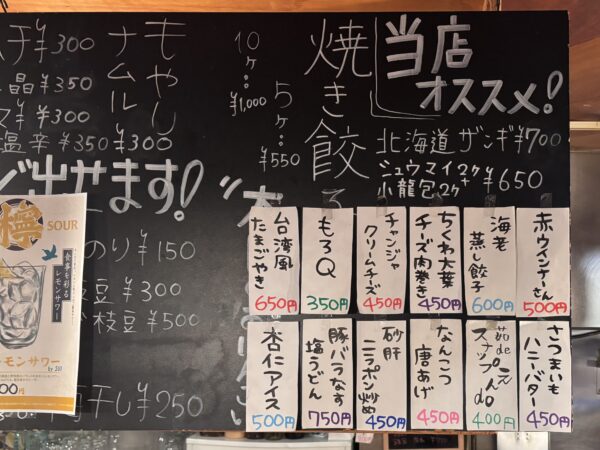 当店
オススメ!
北海道 ザンギ ¥700
シュウマイ2ヶ+
小龍包2ヶ
¥650
焼き餃子
5ヶ…¥550
10ヶ…¥1,000
もやし
ナムル
¥300
晶¥350
¥300
塩辛 ¥350
¥300
出せます!
のり ¥150
豆 ¥300
枝豆 ¥500
梅干し ¥250
赤ウインナーさん
500円
海老
蒸し餃子
600円
ちくわ大葉
チーズ肉巻き
450円
チャンジャ
クリームチーズ
450円
もろQ
350円
台湾風
たまごやき
650円
さつまいも
ハニーバター
450円
茹de
スナップえんdo
400円
なんこつ
唐あげ
450円
砂肝
ニラポン炒め
450円
豚バラなす
塩うどん
750円
杏仁アイス
500円
檸
SOUR
食事も彩る
レモンサワー
レモンサワー